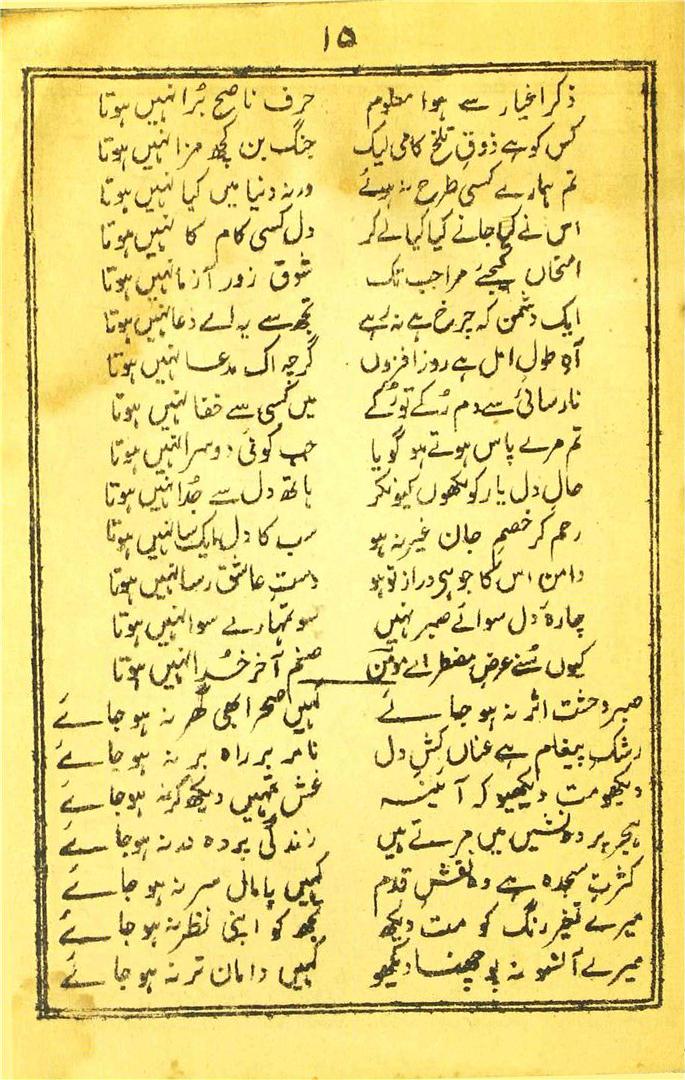 ۱۵
ذکر اغیار سے ہوا معلوم حرف ناصح بُرا نہیں ہوتا
کس کو ہے ذوقِ تلخ کامی لیک جنگ بن کچھ مزا نہیں ہوتا
تم ہمارے کسی طرح نہ ہوئے ورنہ دنیا میں کیا نہیں ہوتا
اس نے کیا جانے کیا کیا لے کر دل کسی کام کا نہیں ہوتا
امتحاں کیجئے مرا جب تک شوق زور آزما نہیں ہوتا
ایک دشمن کہ چرخ ہے نہ رہے تجھ سے یہ اے دعا نہیں ہوتا
آہ طولِ امل ہے روز افزوں گرچہ اک مدعا نہیں ہوتا
نارسائی سے دم رُکے تو رُکے میں کسی سے خفا نہیں ہوتا
تم مرے پاس ہوتے ہو گویا جب کوئی دوسرا نہیں ہوتا
حالِ دل یار کو لکھوں کیونکر ہاتھ دل سے جُدا نہیں ہوتا
رحم کر خصمِ جان غیر نہ ہو سب کا دل ایک سا نہیں ہوتا
دامن اس کا جو ہی دراز تو ہو دستِ عاشق رسا نہیں ہوتا
چارہ دل سوائے صبر نہیں سو تمہارے سوا نہیں ہوتا
کیوں سُنے عرضِ مضطر اے مومنؔ صنم آخر خُدا نہیں ہوتا
صبر وحشت اثر نہ ہو جائے کہیں صحرا بھی گھر نہ ہو جائے
رشکِ پیغام ہے عناں کشِ دل نامہ بر راہ بر نہ ہو جائے
دیکھو مت دیکھیو کہ آئینہ غش تمہیں دیکھ کر نہ ہو جائے
ہجرِ پردہ نشیں میں مرتے ہیں زندگی پردہ در نہ ہو جائے
کثرتِ سجدہ سے وہ نقشِ قدم کہیں پامال سر نہ ہو جائے
میرے تغیر رنگ کو مت دیکھ تجھ کو اپنی نظر نہ ہو جائے
میرے آنسو نہ پوچھنا دیکھو کہیں دامان تر نہ ہو جائے